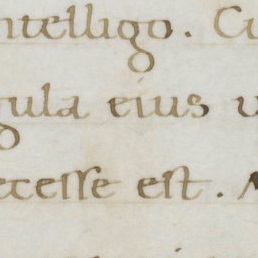 ntelligo. Cu
gula eius u
ecesse est.